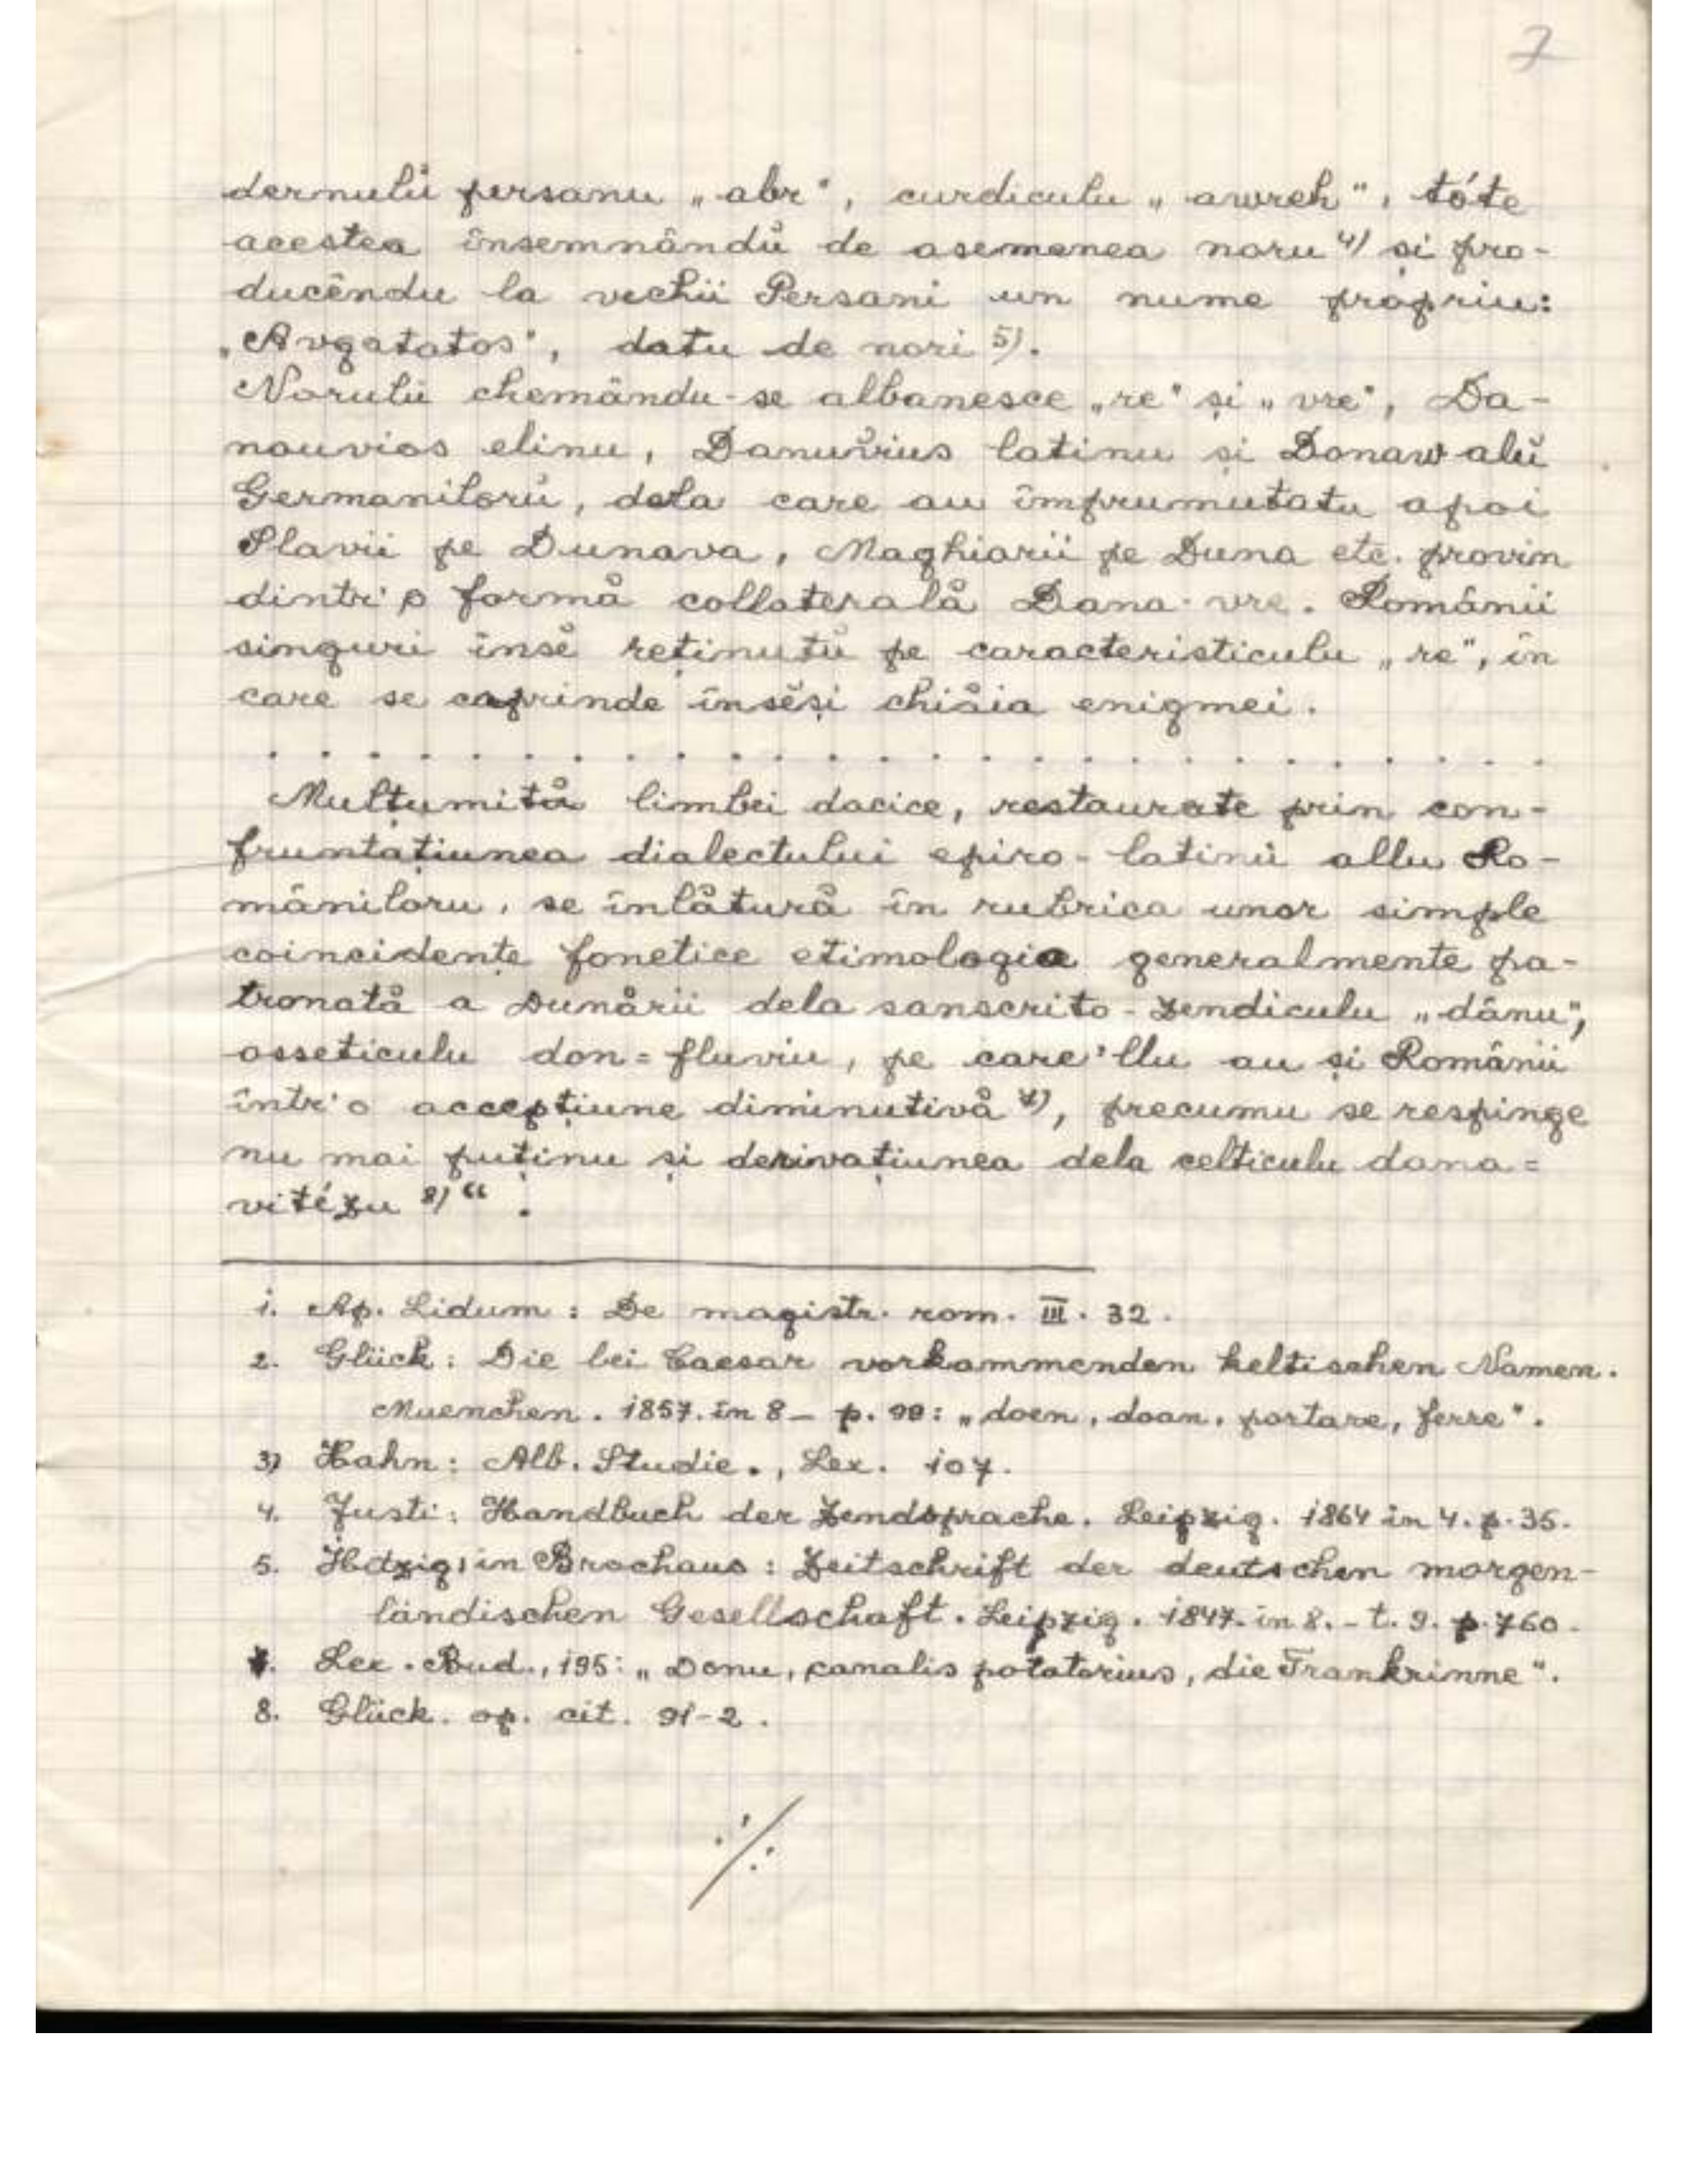 7
dernulŭ persanu „abr“, curdiculu „awreh“, tóte
acestea însemnândŭ de asemenea noru 4) și pro-
ducêndu la vechii Persani un nume propriu:
„Avgatatos“, datu de nori 5).
Norulŭ chemându-se albanesce „re“ și „vre“, Da-
nouvios elinu, Danuvius latinu și Donaw alŭ
Germanilorŭ, dela care au împrumutatu apoi
Slavii pe Dunava, Maghiarii pe Duna etc. provin
dintr'o formă collaterală Dana-vre. Românii
singuri însĕ reținutŭ pe caracteristiculu „re“, în
care se cuprinde însĕși chiăia enigmei.
. . . . . . . . . . . . . . . . . . . . . . . . . .
Mulțumită limbei dacice, restaurate prin con-
fruntațiunea dialectului epiro-latinŭ allu Ro-
mâniloru, se înlătură în rubrica unor simple
coincidențe fonetice etimologia generalmente pa-
tronată a Dunării dela sanscrito-zendiculu „dânu“,
osseticulu don=fluviu, pe care'llu au și Românii
într'o accepțiune diminutivă 7), precumu se respinge
nu mai puținu și derivațiunea dela celticulu dana=
vitézu 8)“.
1. Ap. Lidum: De magistr. rom. III. 32.
2. Glück: Die bei Caesar vorkommenden keltischen Namen.
Muenchen. 1857. in 8 – p. 90: „doen, doan, portare, ferre“.
3) Hahn: Alb. Studie., Lex. 107.
4. Justi: Handbuch der Zendsprache. Leipzig. 1864 in 4. p. 35.
5. Hitzig, in Brochaus: Zeitschrift der deutschen morgen-
ländischen Gesellschaft. Leipzig. 1847. in 8. – t. 9. p. 760.
7. Lex. Bud., 195: „Donu, canalis potatorius, die Trankrinne“.
8. Glück. op. cit. 91-2.